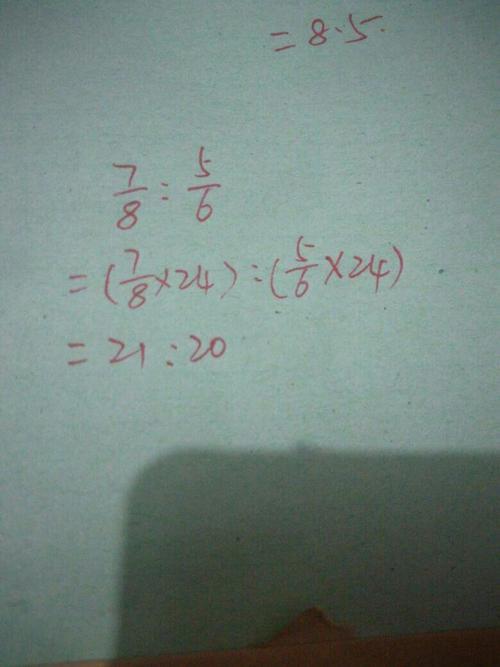 = 8.5.
7/8 : 5/6
= (7/8 × 24) : (5/6 × 24)
= 21 : 20